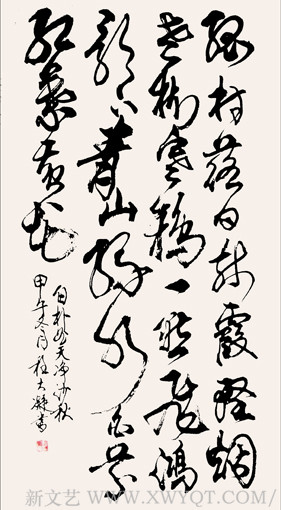 孤村落日残霞轻烟
老树寒鸦一点飞鸿
影下青山绿水白草
红葉黄花
白朴天净沙秋
甲午冬月大书
新文艺 WWW.XWYQT.COM/